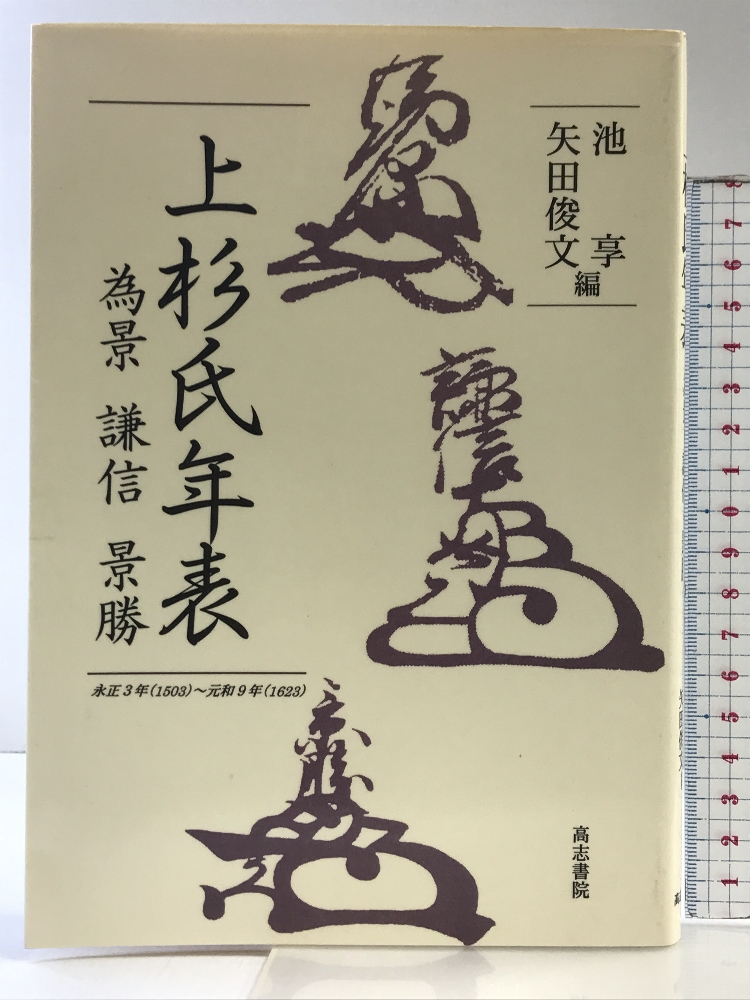 池 享
矢田俊文 編
上杉氏年表
為景 謙信 景勝
永正3年(1503)～元和9年(1623)
高志書院
8
7
6
5
4
3
2
1
0
9
8
7
6
5
4
3
2
1